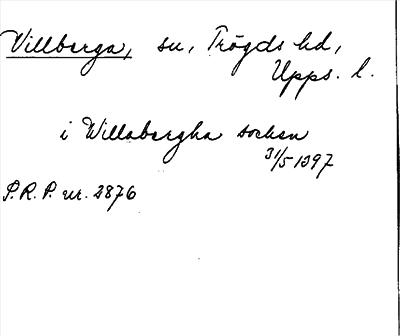 Villberga, sn, Trögds hd,
Upps. l.
i Willabergha sochen
31/5 1397
S.R.P. nr. 2876